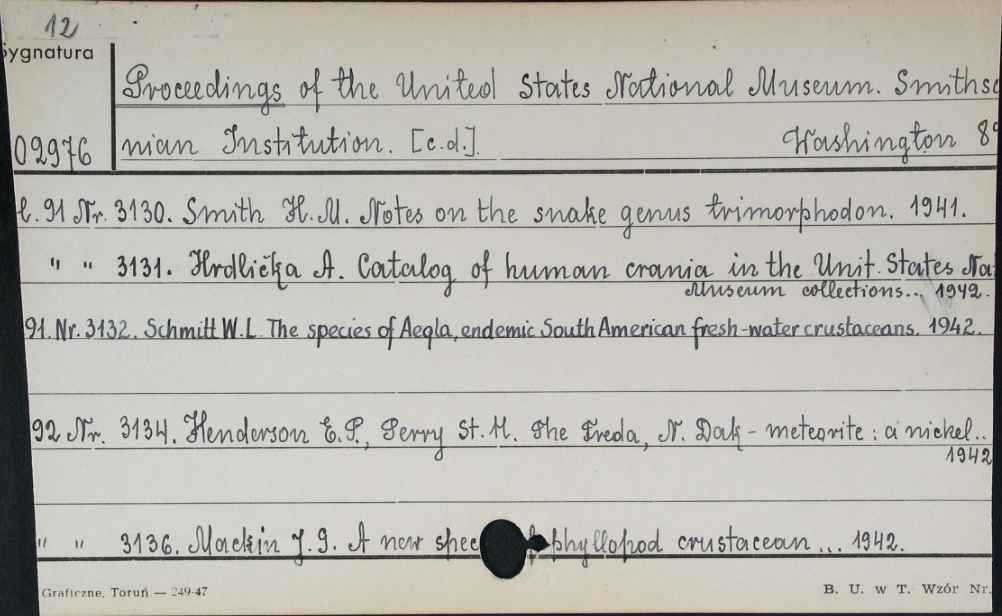 12
Sygnatura
Proceedings of the United States National Museum. Smithso
02976 nian Institution. [c.d.]. Washington 89
t. 91 Nr. 3130. Smith H. M. Notes on the snake genus trimorphodon. 1941.
" " 3131. Hrdlička A. Catalog of human crania in the Unit. States Na
Museum collections... 1942.
91. Nr. 3132. Schmitt W. L. The species of Aegla, endemic South American fresh-water crustaceans. 1942.
92 Nr. 3134. Henderson E. P., Perry St. H. The Freda, N. Dak - meteorite : a nickel..
1942
" " 3136. Mackin J. G. A new spec phyllopod crustacean ... 1942.
Graficzne, Toruń — 249-47 B. U. w T. Wzór Nr.